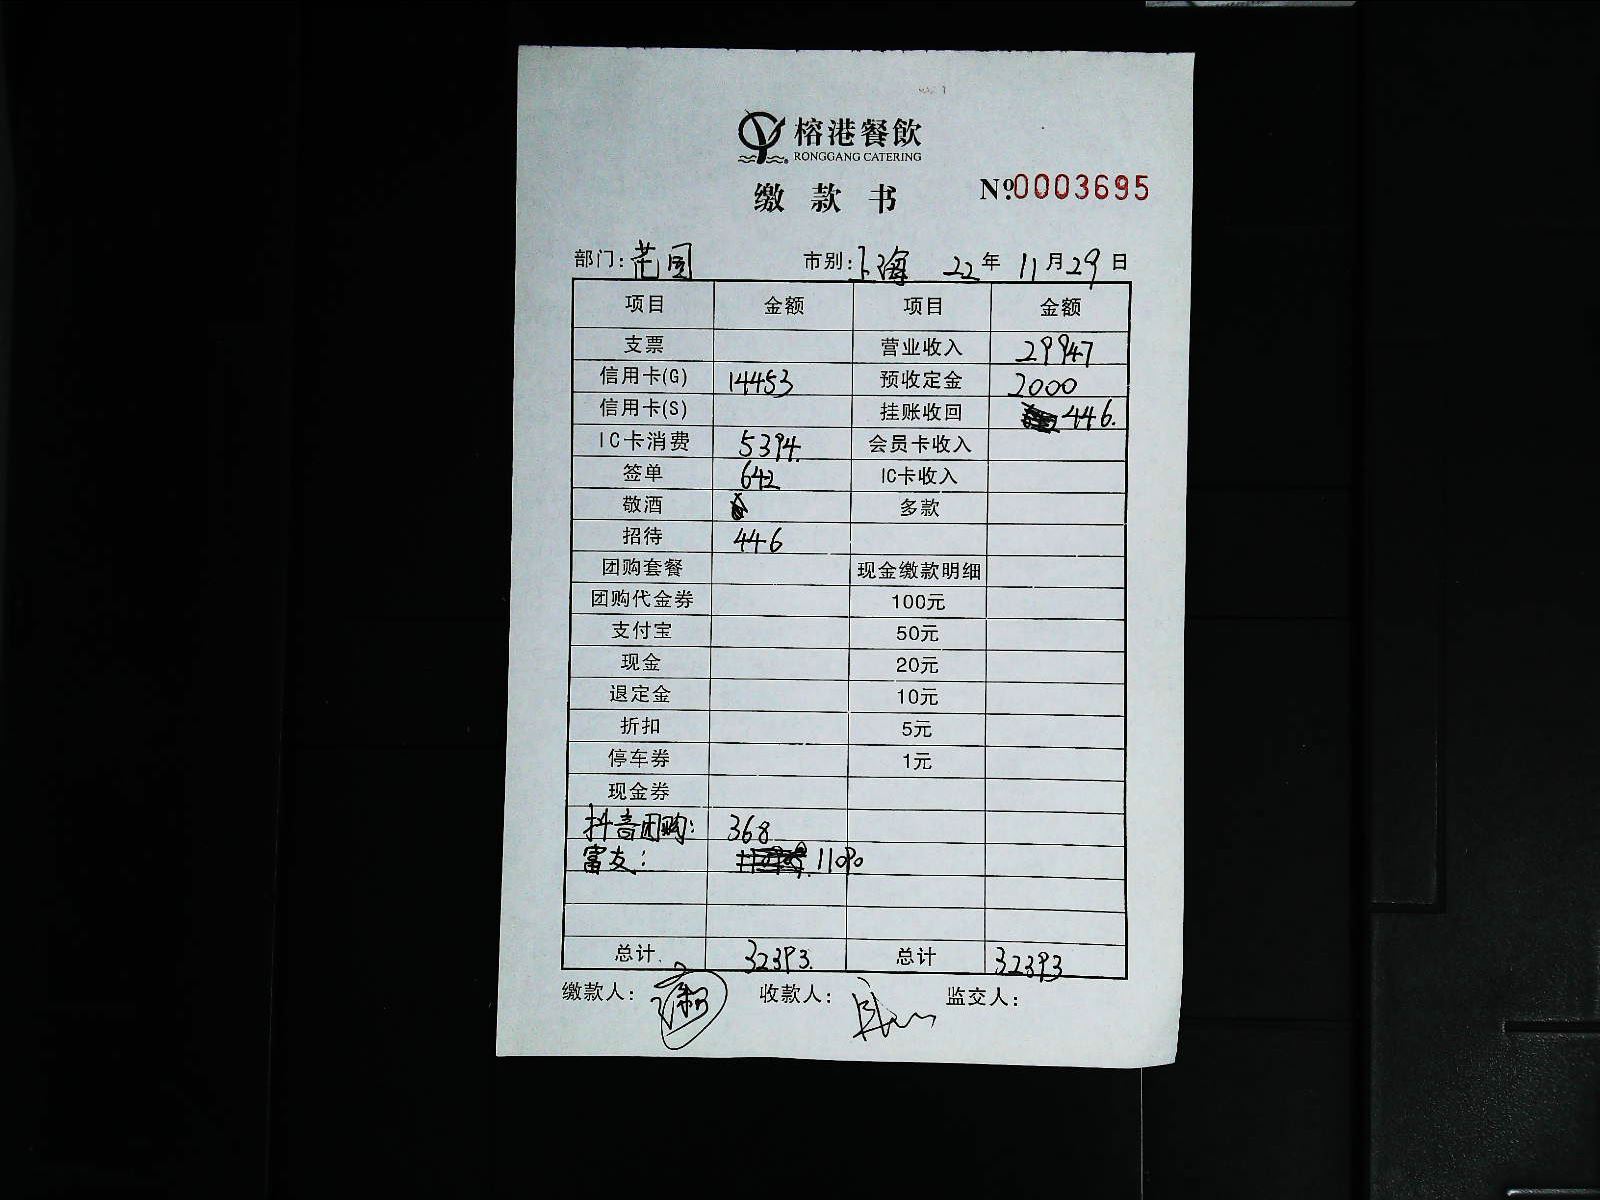 榕港餐飲
RONGGANG CATERING
缴款书 Nº.0003695
部门: 市别:上海 22年11月29日
项目 金额 项目 金额
支票 营业收入 29947
信用卡(G) 14453 预收定金 2000
信用卡(S) 挂账收回 446.
IC卡消费 5394. 会员卡收入
签单 642 IC卡收入
敬酒 多款
招待 446
团购套餐 现金缴款明细
团购代金券 100元
支付宝 50元
现金 20元
退定金 10元
折扣 5元
停车券 1元
现金券
抖音团购: 368
富友: 11090
总计 32393. 总计 32393
缴款人: 收款人: 监交人: